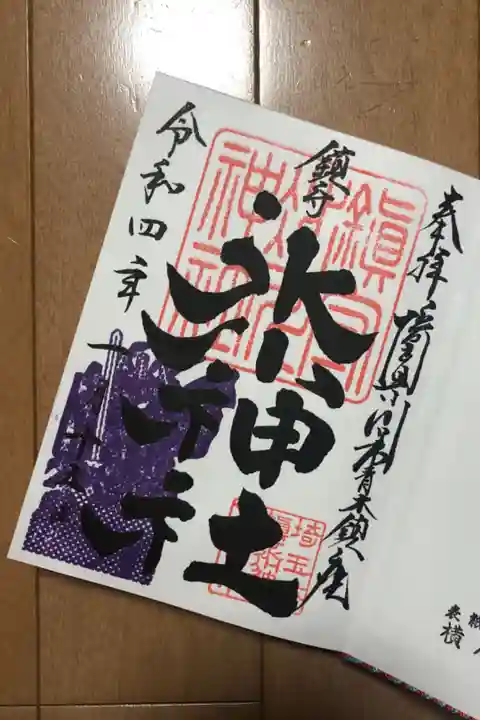 奉拝 埼玉県川口市青木鎮座
鎮守
氷川神社
令和四年
鎮守
氷川
神社
埼玉